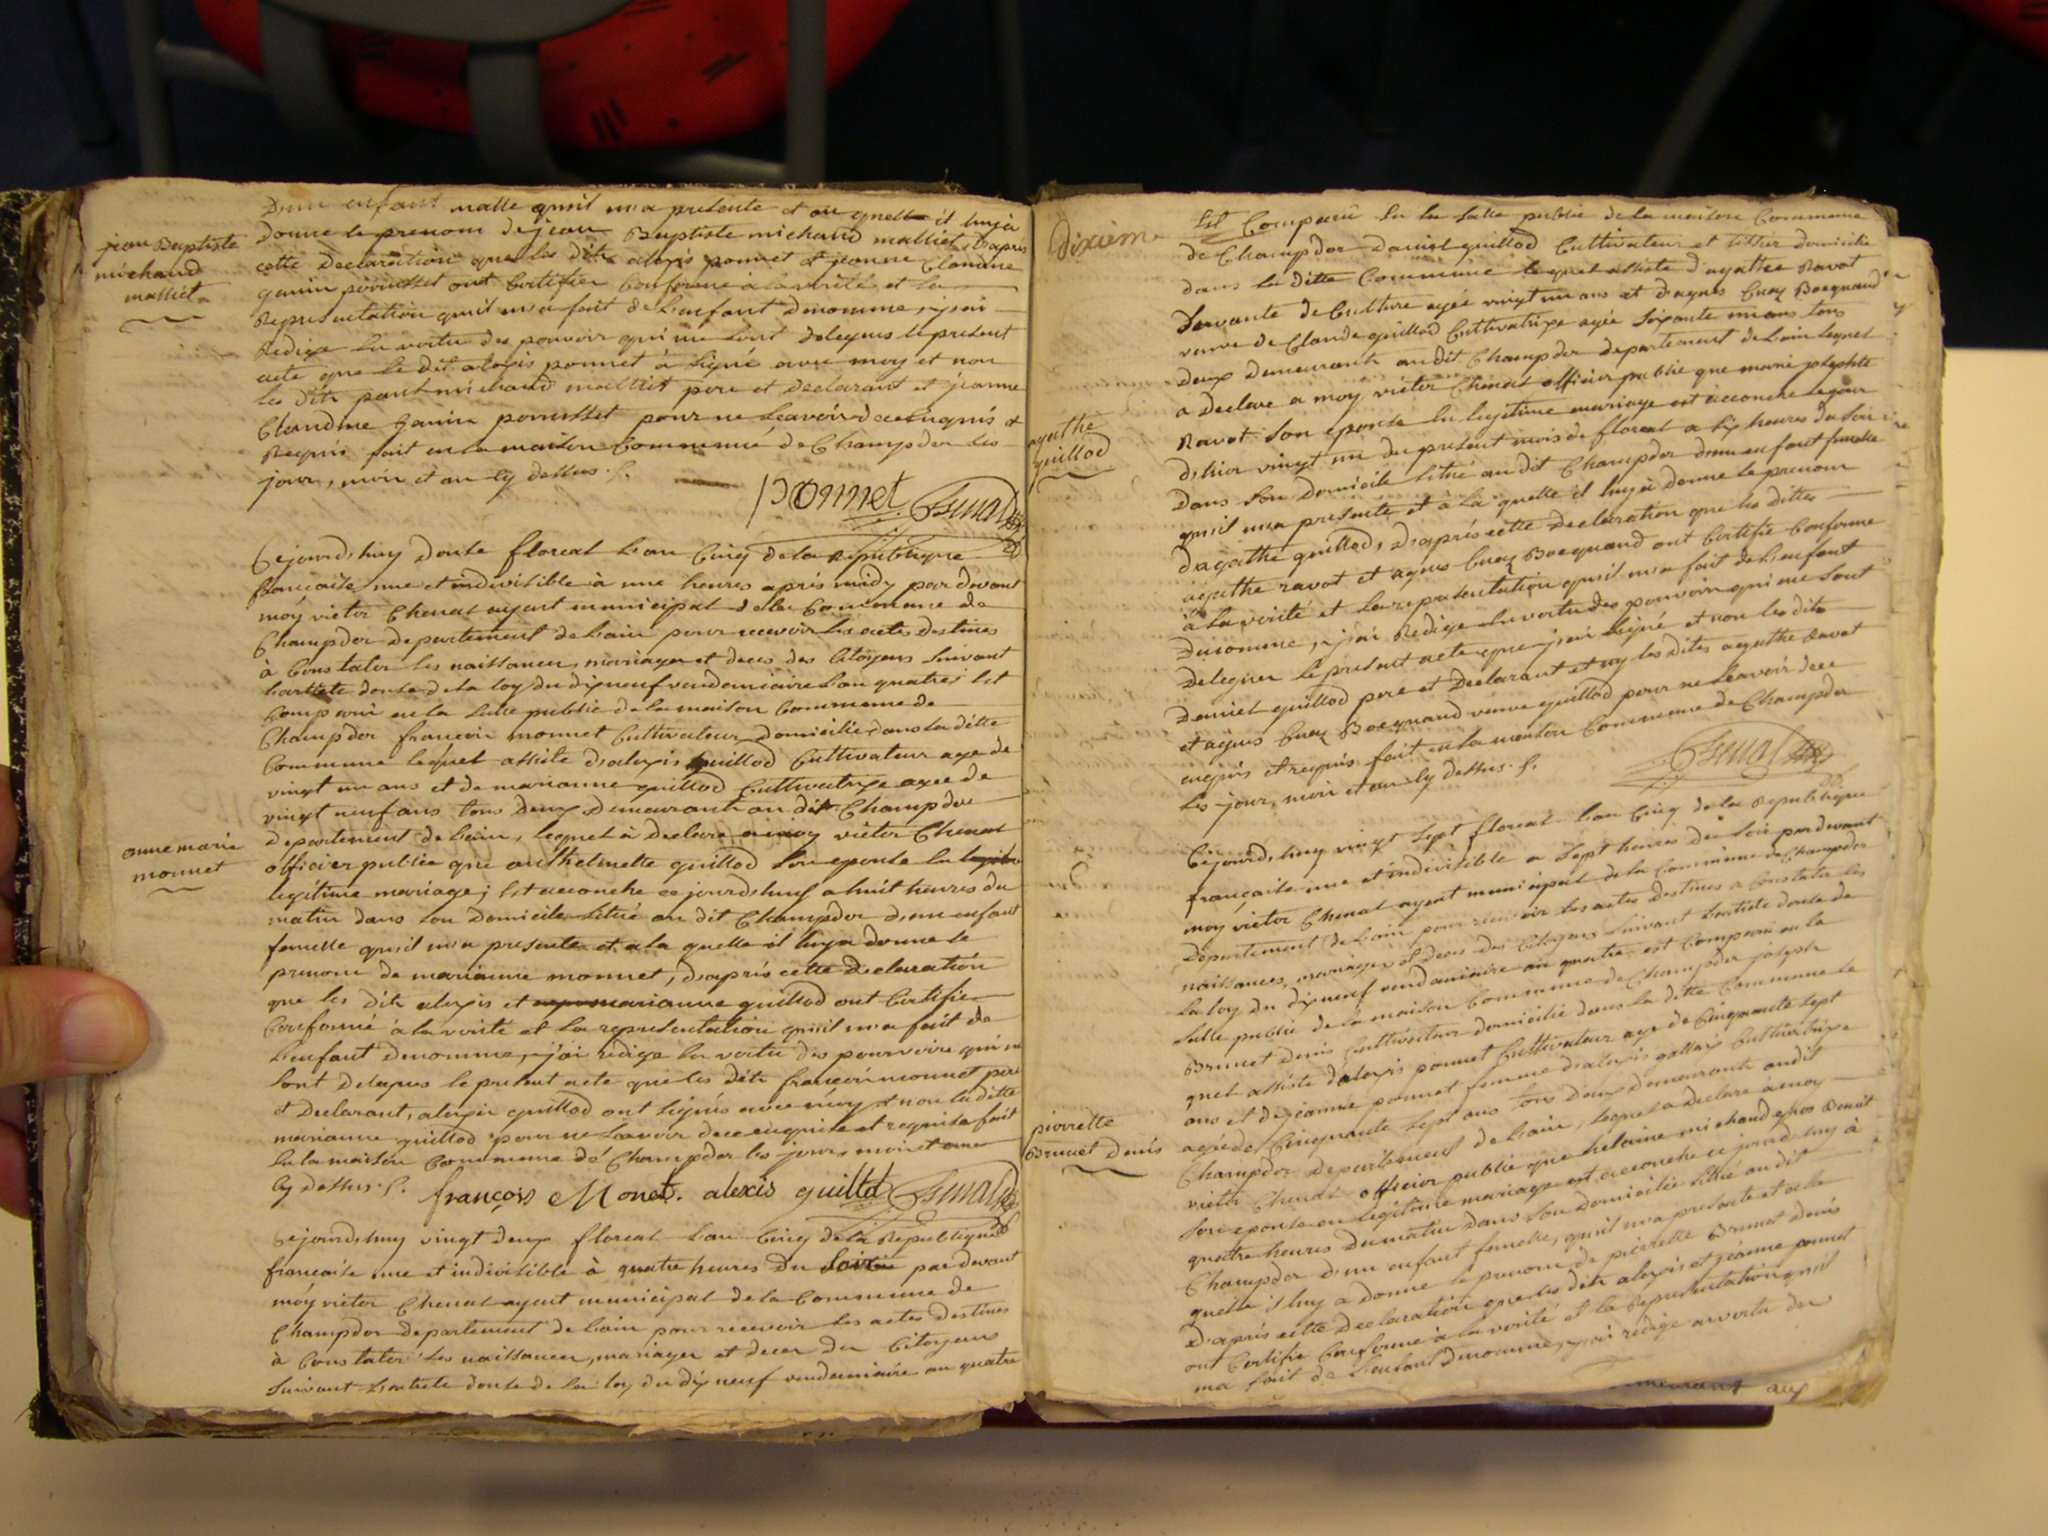 jean Baptiste
michaud
malliet
D'un enfant malle quil m'a présenté et au quelle il luy à
donne le prenom de jean Baptiste michaud malliet, D'après
cette Declaration que les Dits alexis ponnet et jeanne Claudine
ganin ponnsset ont Certifier Conforme à la vérité et la
Representation quil m'a fait de L'enfant Denomme, j'ai
Rédigé En vertu des pouvoir qui me sont délégues le présent
acte que le dit alexis ponnet à signé avec moy et non
les dits paul michaud malliet pere et Declarant et jeanne
Claudine ganin ponnsset pour ne scavoir de ce enquis et
Requis fait en la maison Commune de Champdor les
jour, mois et an cy dessus.
ponnet Chenal
Cejourd'huy Douse floreal L'an Cinq de la Republique
francaise une et indivisible à une heures après midy par Devant
moy victor Chenal agent municipal de la Commune de
Champdor Departement de Lain pour recevoir les actes destines
à Constater les naissances, mariages et deces des Citoyens Suivant
L'article douse de la loy du dixneuf vendemiaire L'an quatres Est
Comparü en la salle public de la maison Commune de
Champdor francois monnet Cultivateur Domicilié dans la ditte
Commune lequel assiste d'alexis guillod Cultivateur age de
vingt un ans et de marianne guillod Cultivatrixe agee de
vingt neuf ans tous deux Demeurants au dit Champdor
departement de Lain, lequel à Declare à moy victor Chenal
anne marie
monnet
officier public que anthelmette guillod son epouse En legitime
legitime mariage; Est accouche ce jourd'huy a huit heures du
matin dans son Domicile Situé au dit Champdor d'un enfant
femelle quil m'a présente et a la quelle il luy a donne le
prenom de marianne monnet, d'après cette Declaration
que les dits alexis et marianne guillod ont Certifie
Conforme à la verité et la représentation quil m'a fait de
L'enfant denomme, j'ai rédige En vertu des pouvoirs qui me
sont délégues le présent acte que les dits francois monnet pere
et Declarant, alexis guillod ont signés avec moy et non la ditte
marianne guillod pour ne scavoir de ce enquise et requise fait
En la maison Commune de Champdor les jours mois et an
cy dessus.
françois Monet. alexis guillod Chenal
Cejourd'huy vingt deux floreal L'an Cinq de la Republique
francaise une et indivisible à quatre heures du Soir par devant
moy victor Chenal agent municipal de la Commune de
Champdor departement de Lain pour recevoir les actes destines
à Constater les naissances, mariages et deces des Citoyens
Suivant L'article douse de la loy du dixneuf vendemiaire an quatre
Dixieme
Est Comparü En la salle public de la maison Commune
de Champdor Daniel guillod Cultivateur et tissier domicilie
dans la ditte Commune lequel assiste d'agathe Ravot
Servante de Culture agée vingt un ans et d'agnes Cuaz Bocquand
veuve de Claude guillod Cultivatrixe agée Soixante un ans tous
deux demeurants au dit Champdor departement de Lain lequel
a Declare a moy victor Chenal officier public que marie josephte
Ravot Son epouse En legitime mariage est accouche le jour
agathe
guillod
d'hier vingt un du present mois de floreal a six heures du Soir
dans Son Domicile Situé au dit Champdor d'un enfant femelle
quil m'a presente et à la quelle il luy à donne le prenom
d'agathe guillod, d'après cette Declaration que les dittes
agathe ravot et agnes Cuaz Bocquand ont Certifié Conforme
à la vérité et la representation quil m'a fait de L'enfant
Denomme, j'ai Rédige En vertu des pouvoir qui me sont
deleguer le present acte que j'ai signé et non les dits
Daniel guillod pere et Declarant et ny les dites agathe Ravot
et agnes Cuaz Bocquand veuve guillod pour ne scavoir de ce
enquis et requis fait en la maison Commune de Champdor
les jour, mois et an cy dessus.
Chenal
Cejourd'huy vingt sept floreal L'an Cinq de la Republique
française une et indivisible a sept heures du soir par devant
moy victor Chenal agent municipal de la Commune de Champdor
Departement de Lain pour recevoir les actes destines a Constater les
naissances, mariages et deces des Citoyens suivant L'article douse de
la loy du dixneuf vendemiaire an quatre est Comparü en la
salle public de la maison Commune de Champdor joseph
Brunet Denis Cultivateur domicilié dans la ditte Commune le
quel assiste d'alexis ponnet Cultivateur age de Cinquante sept
ans et de jeanne ponnet femme d'alexis gallay Cultivatrixe
pierrette
Brunet Denis
agée de Cinquante sept ans tous deux demeurants au dit
Champdor departement de Lain, lequel a Declare à moy
victor Chenal officier public que helaine michaud Benoit
son epouse en legitime mariage est accouche ce jourd'huy à
quatre heures du matin dans Son Domicile Situé au dit
Champdor d'un enfant femelle, quil m'a presente et a la
quelle il luy a donne le prenom de pierrette Brunet Denis
D'après cette Declaration que les dits alexis et jeanne ponnet
ont Certifie Conforme à la vérité et la Representation quil
ma fait de L'enfant denomme, j'ai rédige en vertu des